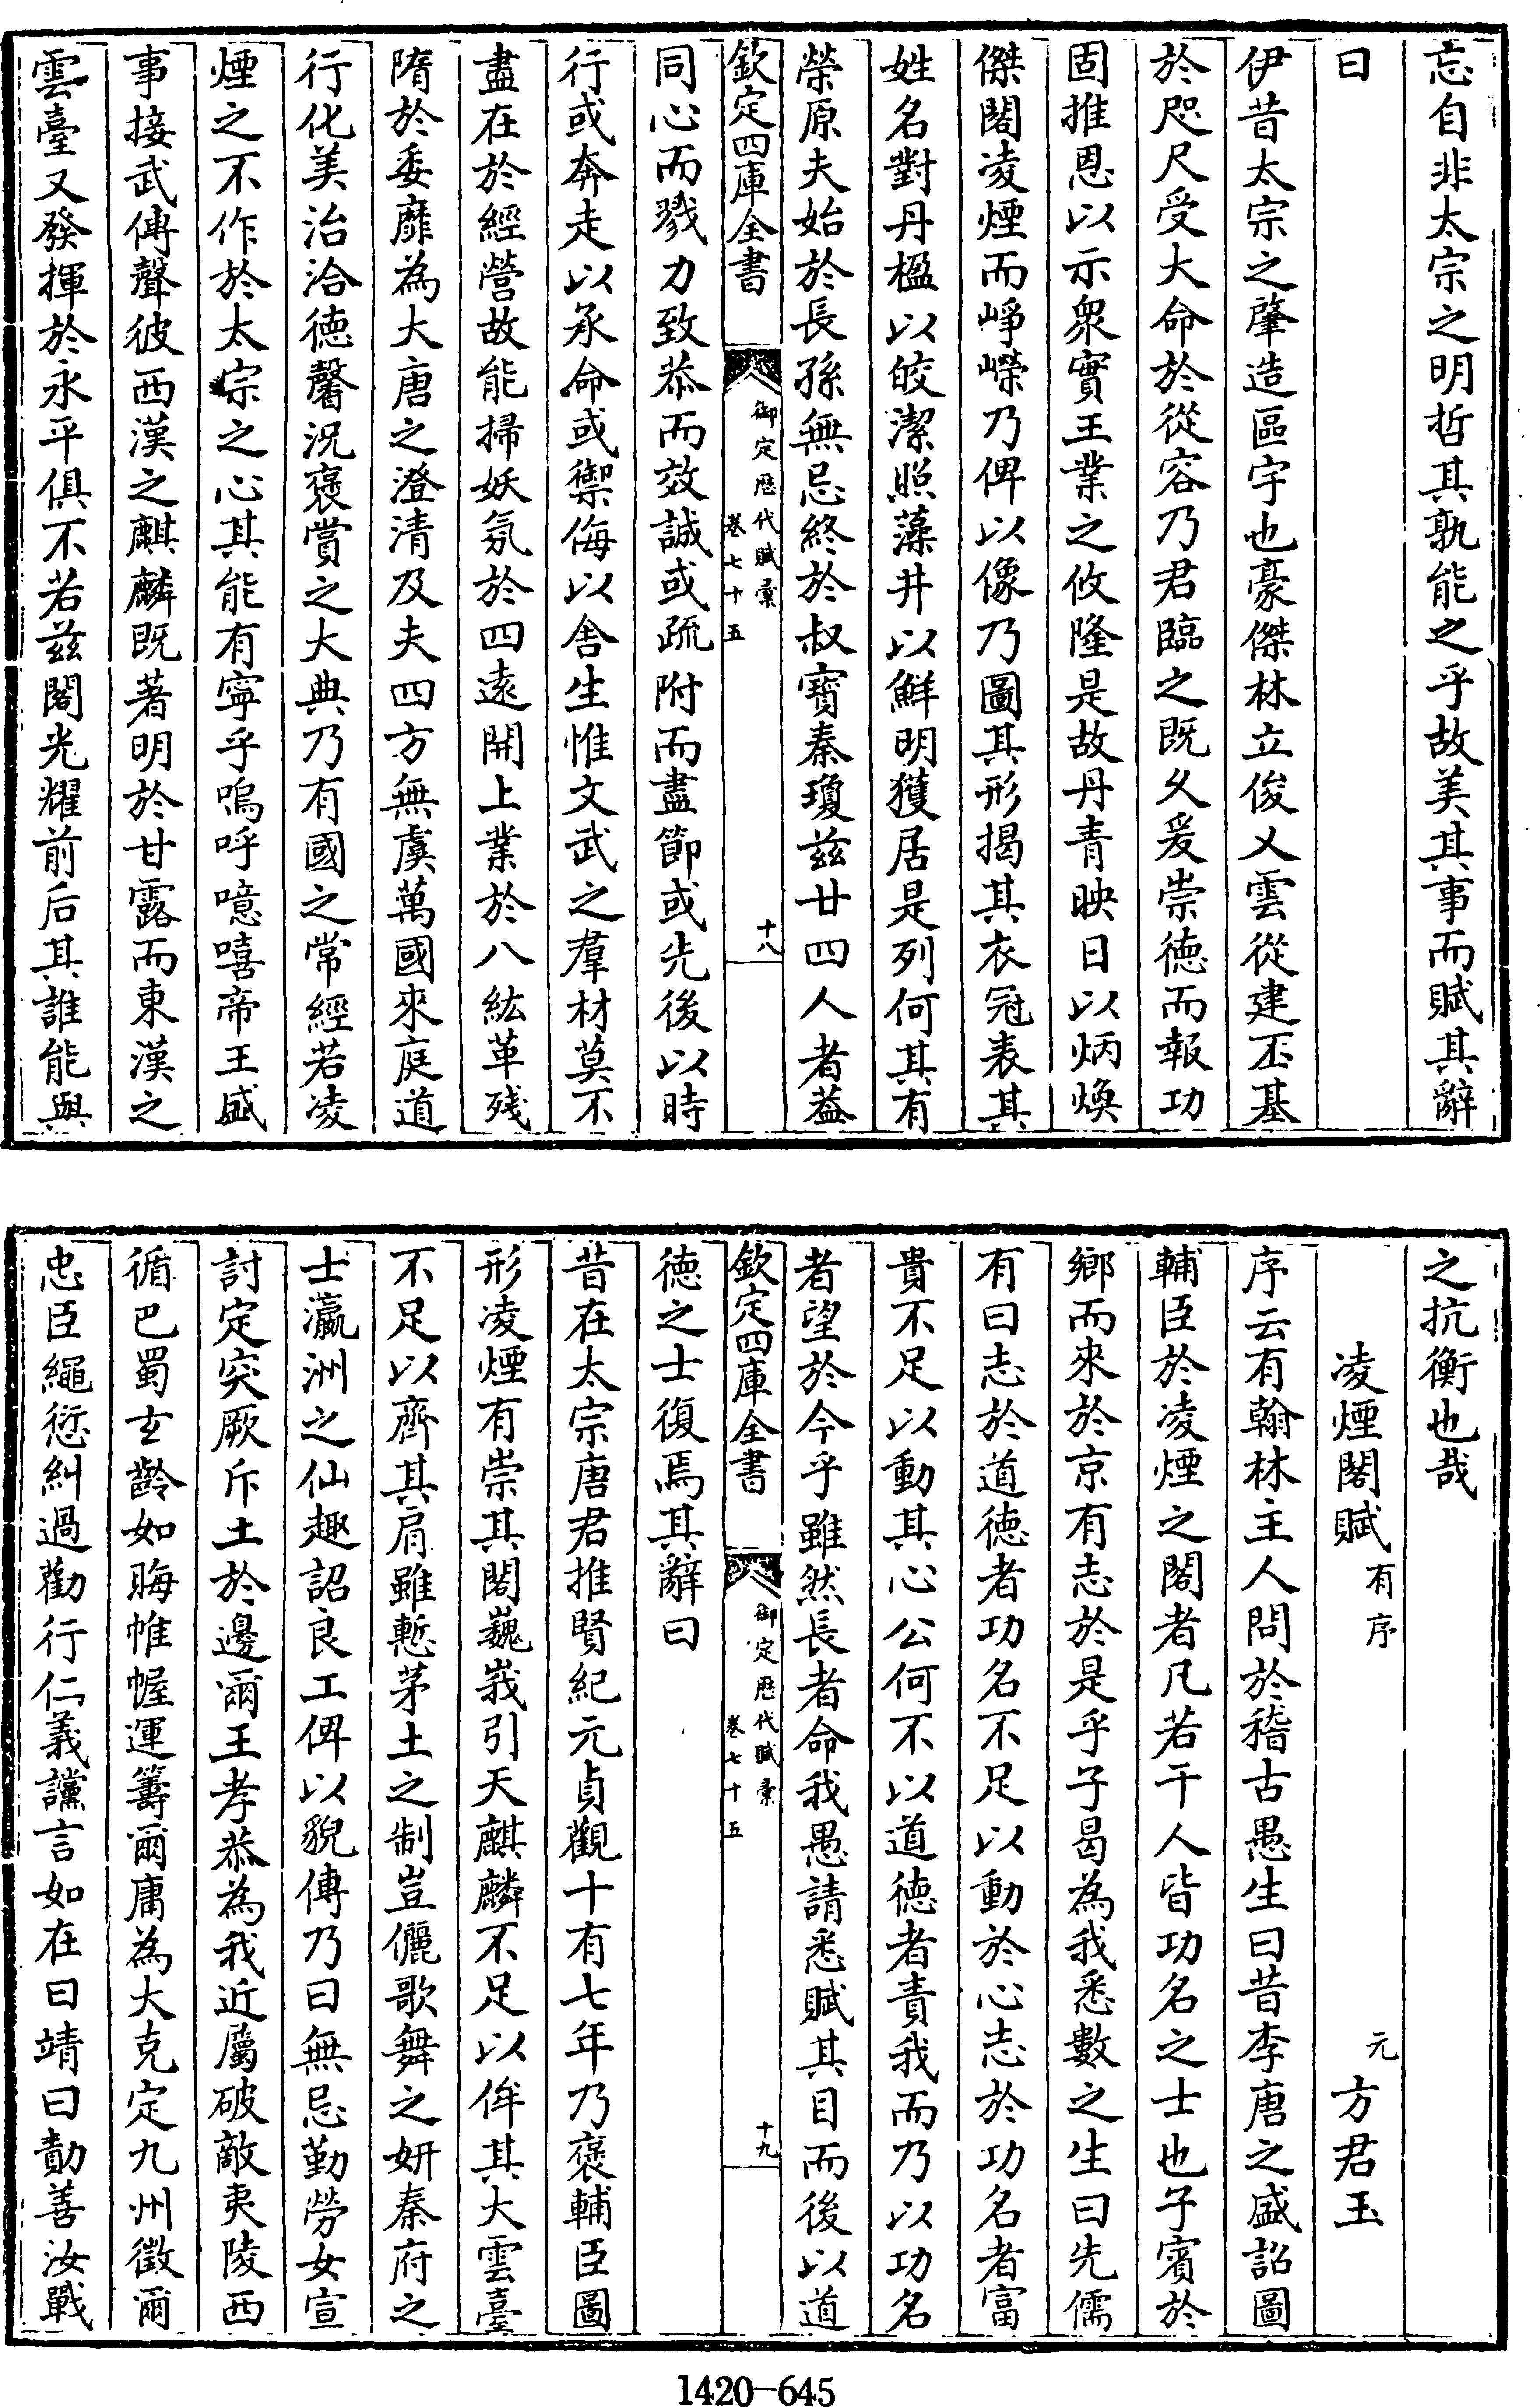 忘自非太宗之明哲其孰能之乎故美其事而賦其辭
曰
伊昔太宗之肇造區宇也豪傑林立俊乂雲從建丕基
於咫尺受大命於從容乃君臨之既久爰崇德而報功
固推恩以示衆實王業之攸隆是故丹青映日以炳煥
傑閣凌煙而崢嶸乃俾以像乃圖其形揭其衣冠表其
姓名對丹楹以皎潔照藻井以鮮明獲居是列何其有
榮原夫始於長孫無忌終於叔寶秦瓊兹廿四人者葢
欽定四庫全書
御定歷代賦彚
卷七十五
十八
同心而戮力致恭而效誠或疏附而盡節或先後以時
行或奔走以承命或禦侮以舎生惟文武之羣材莫不
盡在於經營故能掃妖氛於四遠開上業於八紘革殘
隋於委靡為大唐之澄清及夫四方無虞萬國來庭道
行化美治洽德馨況褒賞之大典乃有國之常經若凌
煙之不作於太宗之心其能有寧乎嗚呼噫嘻帝王盛
事接武傳聲彼西漢之麒麟既著明於甘露而東漢之
雲臺又發揮於永平俱不若兹閣光耀前后其誰能與
之抗衡也哉
凌煙閣賦 有序 元 方君玉
序云有翰林主人問於稽古愚生曰昔李唐之盛詔圖
輔臣於凌煙之閣者凡若干人皆功名之士也子賓於
鄉而來於京有志於是乎子曷為我悉數之生曰先儒
有曰志於道德者功名不足以動於心志於功名者富
貴不足以動其心公何不以道德者責我而乃以功名
者望於今乎雖然長者命我愚請悉賦其目而後以道
欽定四庫全書
御定歷代賦彚
卷七十五
十九
德之士復焉其辭曰
昔在太宗唐君推賢紀元貞觀十有七年乃褒輔臣圖
形凌煙有崇其閣巍峩引天麒麟不足以侔其大雲臺
不足以齊其肩雖慙茅土之制豈儷歌舞之妍秦府之
士瀛洲之仙趣詔良工俾以貌傳乃曰無忌勤勞女宣
討定突厥斥土於邊爾王孝恭為我近屬破敵夷陵西
循巴蜀玄齡如晦帷幄運籌爾庸為大克定九州徵爾
忠臣繩愆糾過勸行仁義讜言如在曰靖曰勣善汝戰
1420-645